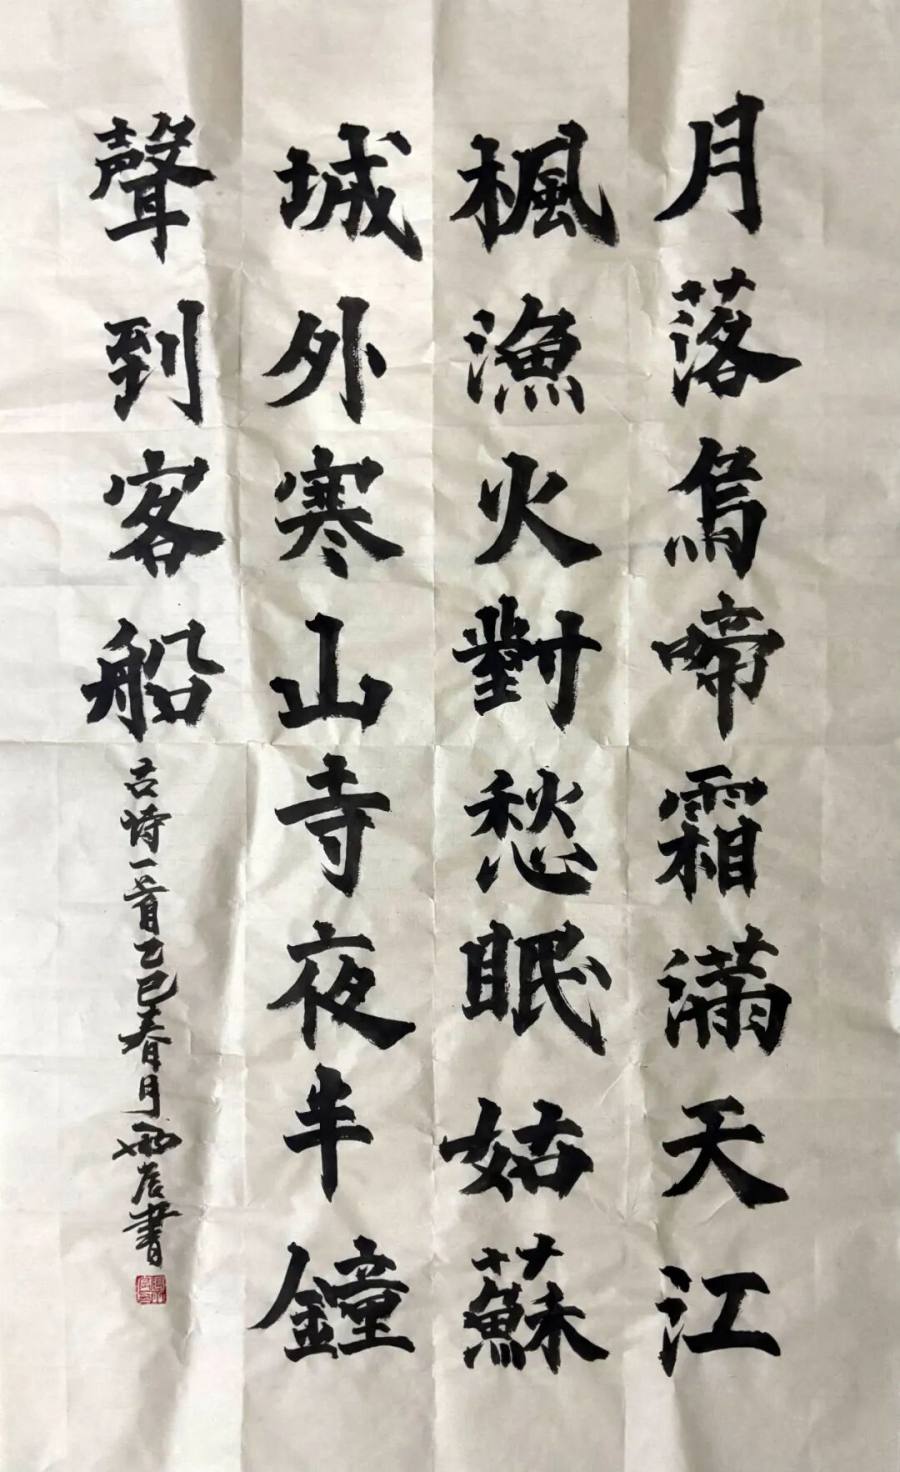 月落烏啼霜滿天江
楓漁火對愁眠姑蘇
城外寒山寺夜半鐘
聲到客船
古詩一首乙巳春月 書